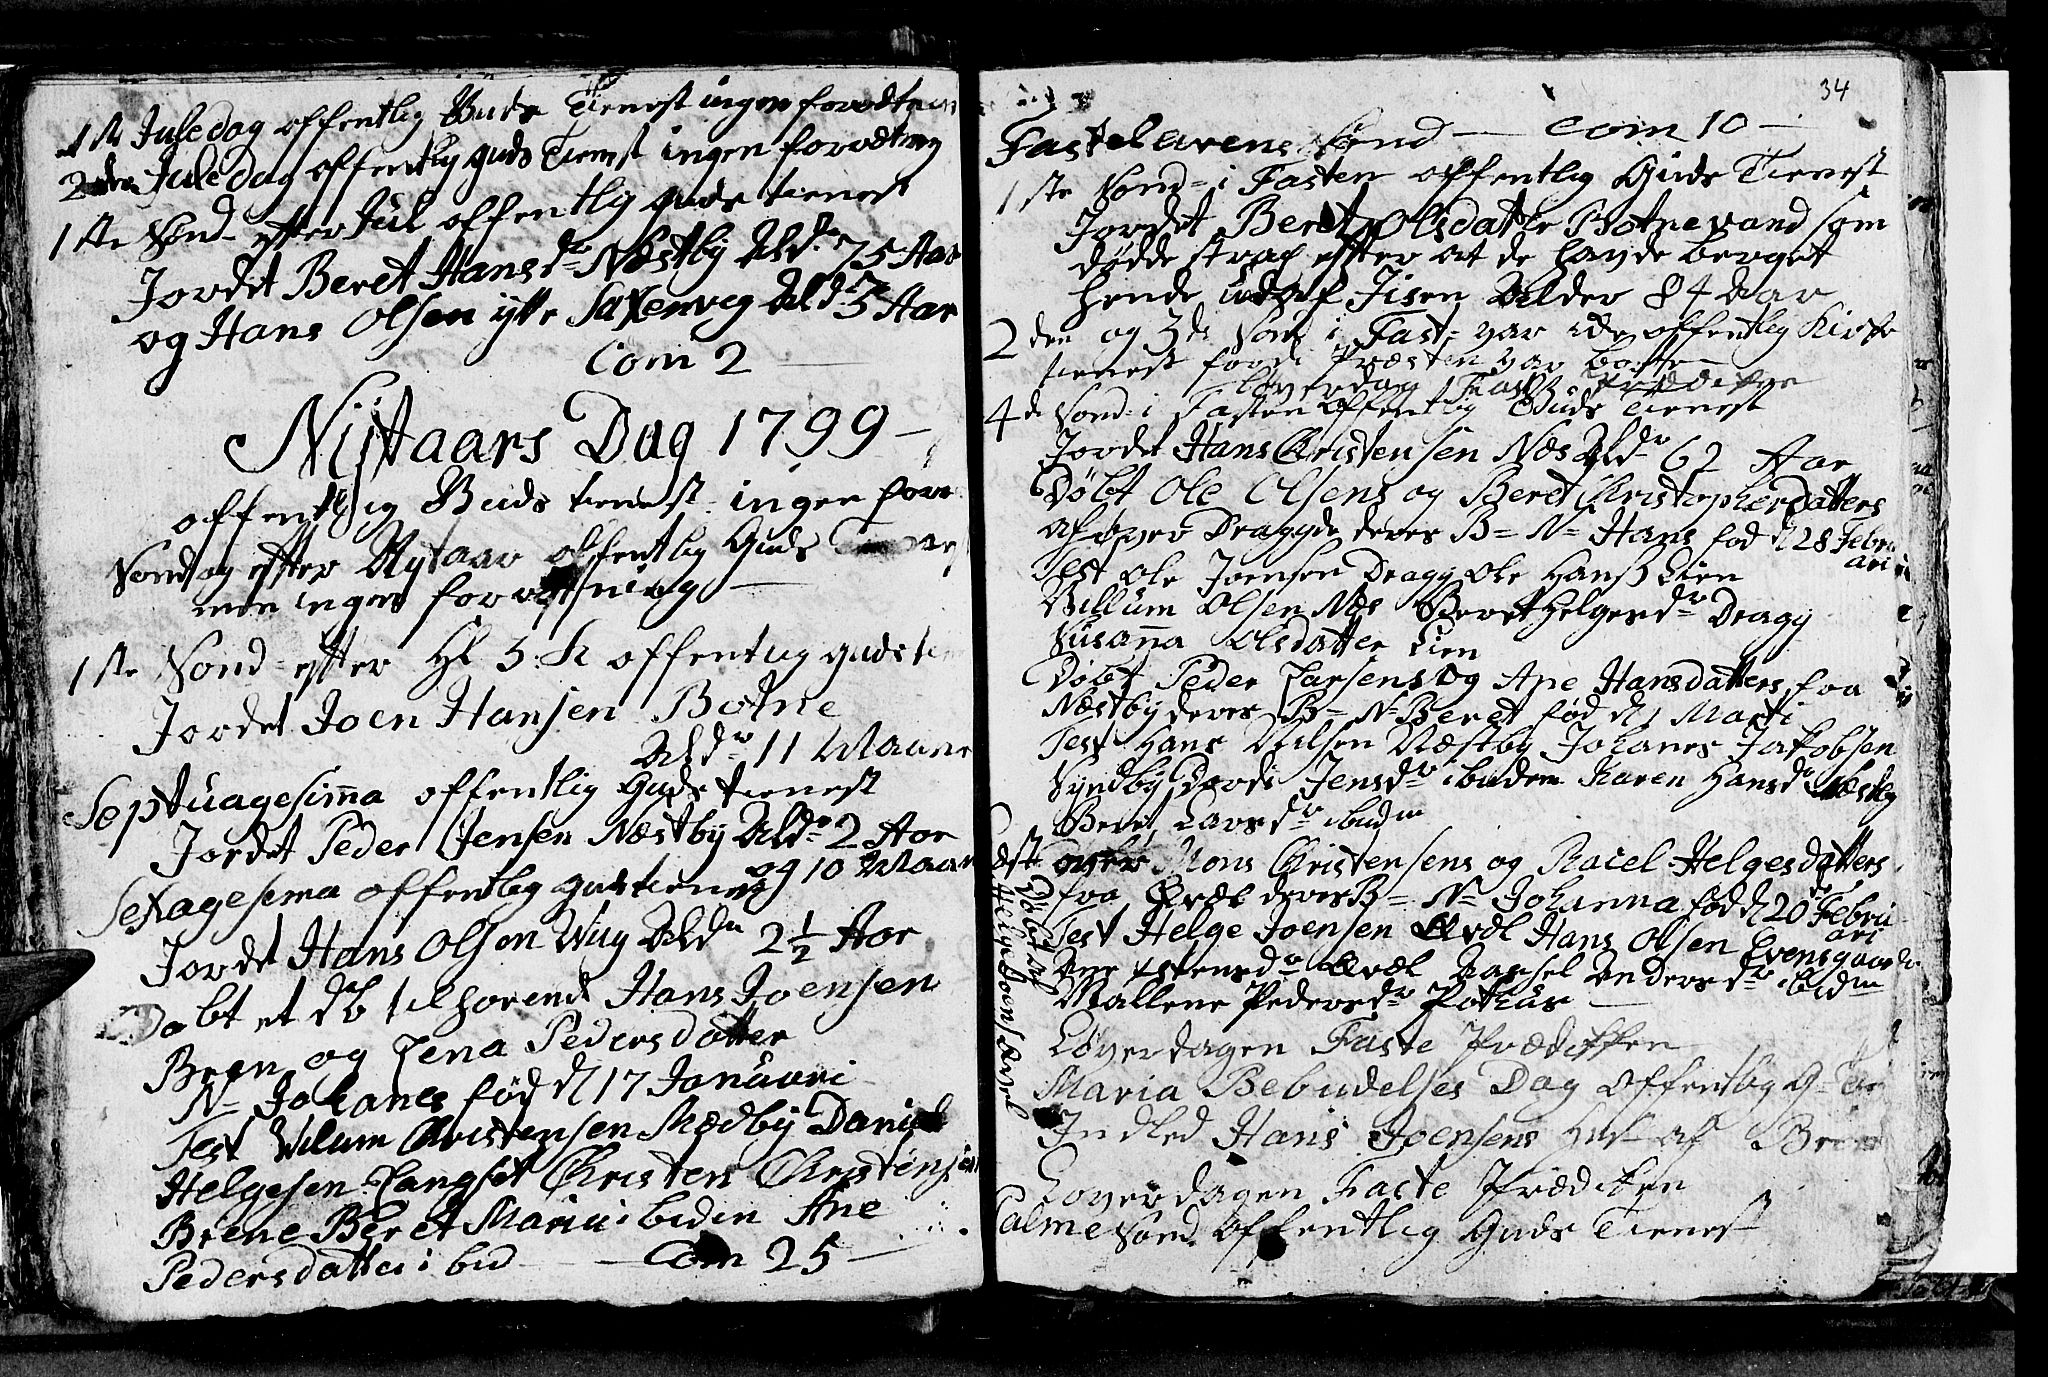 1ste Juledag offentlig Guds Tienest ingen forrætning
2den Juledag offentlig guds Tienest ingen forrætning
1ste Sønd- efter Jul offentlig guds tienest
Jordet Beret Hans dr Næstby Aldr 75 Aar
og Hans Olsen ytte Saxenvig Ald 3 Aar
Com 2
Nijtaars Dag 1799 -
offentlig Guds tienest ingen forr
Søndag efter Nytaar offentlig Guds
men ingen forrætning
1ste Sønd- efter Hl 3 K offentlig guds tie
Jordet Joen Hansen Botne
Aldr 11 Maane
Septuagesima offentlig Guds tienest
Jordet Peder Jensen Næstby Aldr 2 Aar
og 10 Maan
Sexagesima offentlig guds tienest
Jordet Hans Olsen Wug Aldr 2½ Aar
Døbt et db tilhørende Hans Joensen
Breen og Lena Pedersdatter
N- Johanes fød d 17 Januari
Test Vilum Christensen Mædby Daniel
Helgesen Langset Christen Christensen
Brene Beret Maria ibiden Ane
Pedersdatter ibid - Com 25 -
34
Fastelavens Sønd - Com 10 -
1ste Sønd- i Fasten offentlig Guds Tienest
Jordet Beret Olsdatter Botnevand som
dødde strax efter at de havde berget
hende ud af Jisen Alder 84 Aar
2den og 3de Sønd i Fast- var ike offentlig Kirke
tienest fordi Præsten var borte
Løverdag Fast- Prædiken
4de Sønd- i Fasten offentlig Guds Tienest
Jordet Hans Christensen Næs Aldr 62 Aar
Døbt Ole Olsens og Beret Christopherdatters
af øver Dragyde deres B= N= Hans fød d 28 Febru
ari
Test Ole Joensen Dragy Ole Hanss Lien
Villum Olsen Næs Beret Helgesdr Dragy
Susanna Olsdatter Lien
Døbt Peder Larsens og Ane Hansdatters fra
Næstby deres B= N= Beret fød d 1 Marti
Test Hans Nilsen Næstby Johanes Jakobsen
Syndby Dordi Jensdr ibidem Karen Hansdr Næstby
Beret Larsdr ibidm
Mons Christensens og Raiel Helgesdatters
fra Qvæl deres B= N= Johanna fød d 20de Febru
ari
Test Helge Joensen Qvæl Hans Olsen Evensgaard
Ane Estensdr Qvæl Andersdr ibidm
Mallene Pedersdr Pothus
Døbt
Helge Joensen Qvæl
Løverdagen Faste Prædikken
Maria Bebudelses Dag offentlig G- Tie
Indled Hans Joensens Hust- af Breen
Løverdagen Faste Prædiken
Palme Sønd. offentlig Guds Tienest